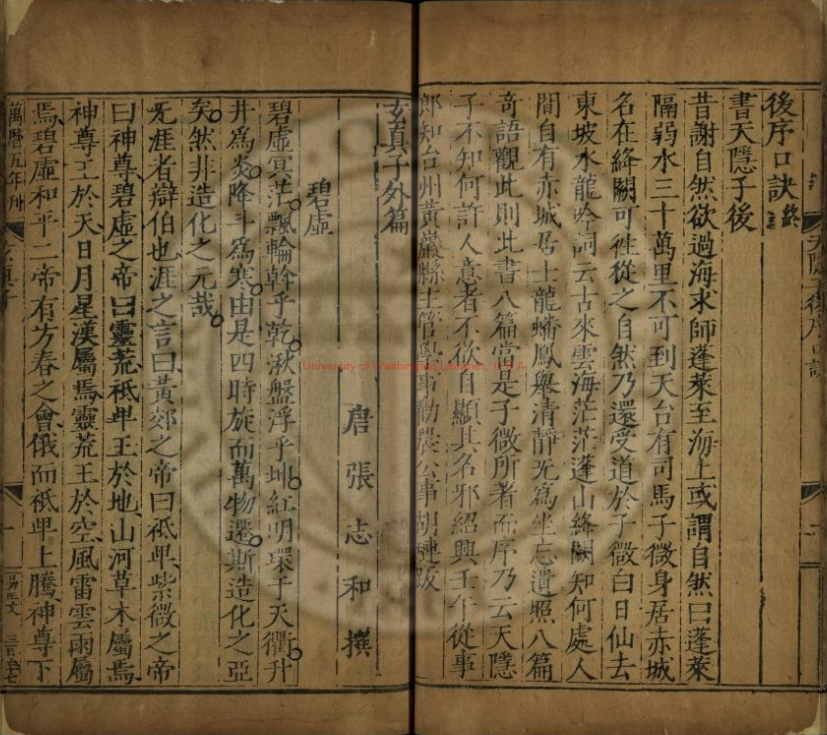 後序口訣終
書天隱子後
昔謝自然欲過海求師蓬萊至海上或謂自然曰蓬萊
隔弱水三十萬里不可到天台有司馬子微身居赤城
名在絳闕可徃從之自然乃還受道於子微白日仙去
東坡水龍吟詞云古來雲海茫茫蓬山絳闕知何處人
間自有赤城居士龍蟠鳳舉清靜无為坐忘遺照八篇
奇語觀此則此書八篇當是子微所著而序乃云天隱
子不知何許人意者不欲自顯其名邪紹興壬午從事
郎知台州黃巖縣主管學事勸農公事胡璉跋
天隱子後序口訣
玄真子外篇
唐張志和撰
碧虛
碧虛冥茫飄輪斡乎乾湫盤浮乎坤紅明環于天衢升
井為炎降斗為寒由是四時旋而萬物遷斯造化之亞
矣然非造化之元哉
无涯者辯伯也涯之言曰黃郊之帝曰祇卑紫微之帝
曰神尊碧虛之帝曰靈荒祇卑王於地山河草木屬焉
神尊王於天日月星漢屬焉靈荒王於空風雷雲雨屬
焉碧虛和平二帝有方春之會俄而祇卑上騰神尊下
萬曆五年刊
玄真子
一
University of Washington Libraries, U.S.A.